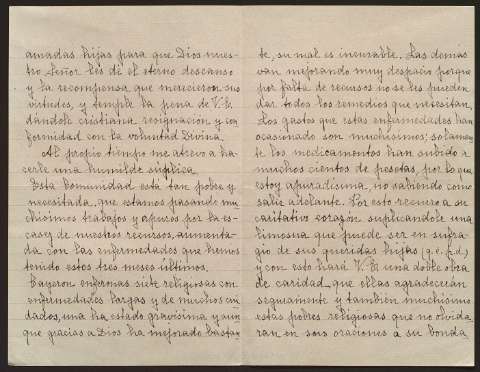 amadas hijas para que Dios nues-
tro Señor les dé el eterno descanso
y la recompensa que merecieron sus
virtudes, y temple la pena de V. E.
dándole cristiana resignación y con
formidad con la voluntad Divina.
Al propio tiempo me atrevo a ha-
cerle una humilde súplica.
Esta Comunidad está tan pobre y
necesitada, que estamos pasando mu
chísimos trabajos y apuros por la es-
casez de nuestros recursos, aumenta-
da con las enfermedades que hemos
tenido estos tres meses últimos.
Cayeron enfermas siete religiosas con
enfermedades largas y de muchos cui
dados, una ha estado gravísima y aun
que gracias a Dios ha mejorado bastan
te, su mal es incurable. Las demás
van mejorando muy despacio porque
por falta de recursos no se les pueden
dar todos los remedios que necesitan.
Los gastos que estas enfermedades han
ocasionado son muchísimos; solamen
te los medicamentos han subido a
muchos cientos de pesetas, por lo que
estoy apuradísima, no sabiendo como
salir adelante. Por esto recurro a su
caritativo corazón suplicándole una
limosna que puede ser en sufra
gio de sus queridas hijas (q.e.p.d.)
y con esto hará V. E. una doble obra
de caridad, que ellas agradecerán
seguramente y también muchísimo
estas pobres religiosas que no olvida
rán en sus oraciones a su bonda